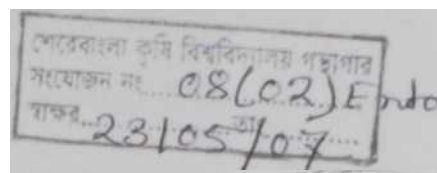 শেরেবাংলা কৃষি বিশ্ববিদ্যালয় গন্থাগার
সংযোজন নং.... 08(02) Endo
স্বাক্ষর... 23/05/07 তাং.......